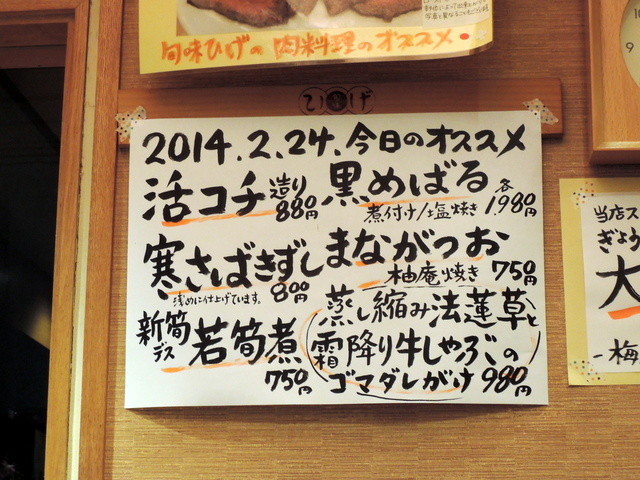 旬味ひげの肉料理のオススメ
ひげ
2014.2.24.今日のオススメ
活コチ 造り 880円
黒めばる 各
煮付け/塩焼き 1,980円
寒さばきずし
浅めに仕上げています。 800円
まながつお
柚庵焼き 750円
新筍デス 若筍煮
750円
蒸し縮み法蓮草と
霜降り牛しゃぶの
ゴマダレがけ 980円
当店ス
ぎょう
大
-梅
10
9